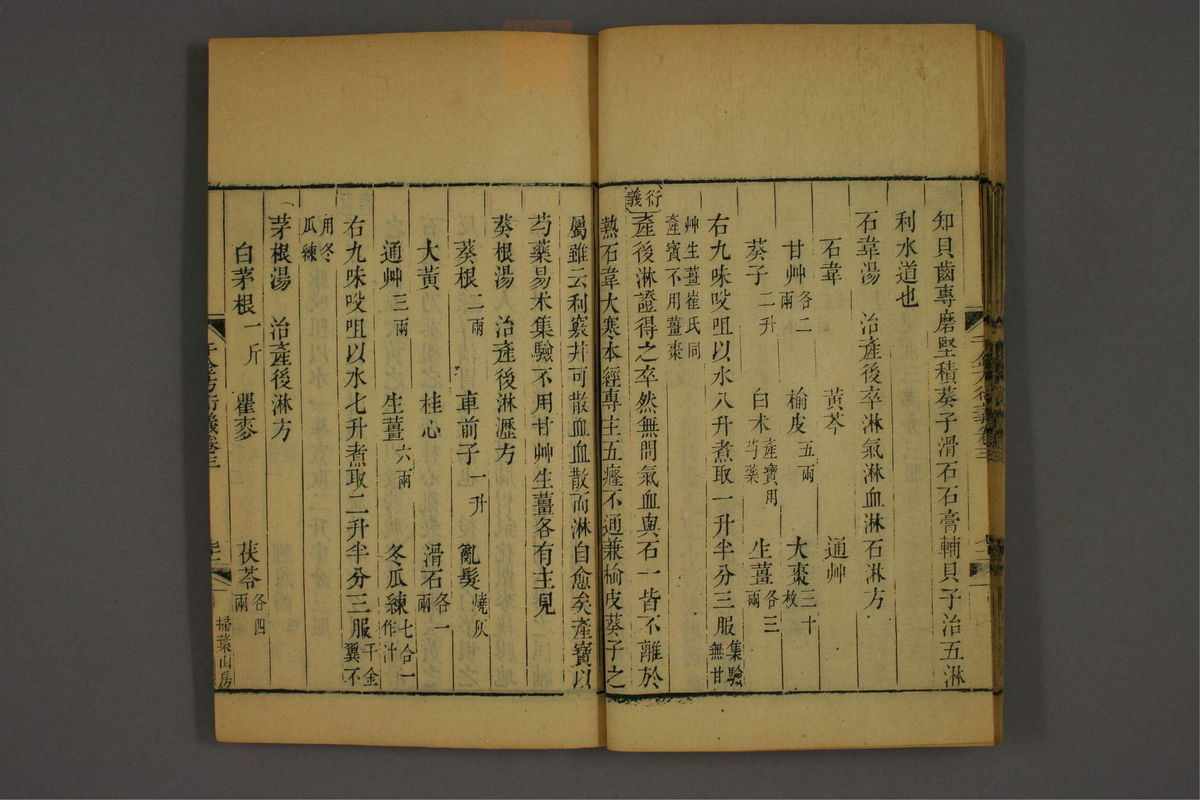 知貝齒專磨堅積葵子滑石石膏輔貝子治五淋
利水道也
石韋湯 治產後卒淋氣淋血淋石淋方
石韋 黃芩 通艸
甘艸各二兩 榆皮五兩 大棗三十枚
葵子二升 白朮產寶用芍藥 生薑各三兩
右九味㕮咀以水八升煮取一升半分三服集驗無甘
艸生薑崔氏同產寶不用薑棗
衍義
產後淋證得之卒然無問氣血與石一皆不離於
熱石韋大寒本經專主五癃不通兼榆皮葵子之
屬雖云利竅幷可散血血散而淋自愈矣產寶以
芍藥易朮集驗不用甘艸生薑各有主見
葵根湯 治產後淋瀝方
葵根二兩 車前子一升 亂髮燒灰
大黃 桂心 滑石各一兩
通艸三兩 生薑六兩 冬瓜練七合一作汁
右九味㕮咀以水七升煮取二升半分三服千金翼不
用冬瓜練
茅根湯 治產後淋方
白茅根一斤 瞿麥 茯苓各四兩
千金方衍義卷三
掃葉山房